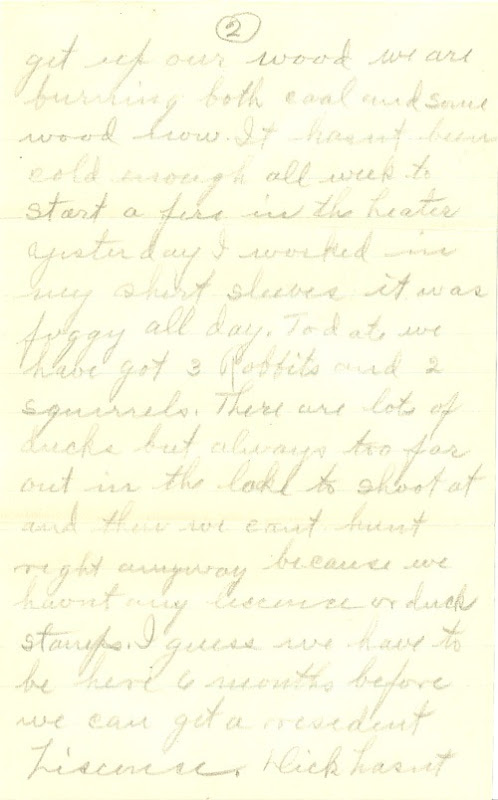 2
get up our wood we are
burning both coal and some
wood now. It hasnt been
cold enough all week to
start a fire in the heater
yesterday I worked in
my shirt sleeves it was
foggy all day. To date we
have got 3 Rabbits and 2
squirrels. There are lots of
ducks but always too far
out in the lake to shoot at
and then we cant hunt
right anyway because we
havnt any liscence or duck
stamps. I guess we have to
be here 6 months before
we can get a resident
Liscence. Dick hasnt